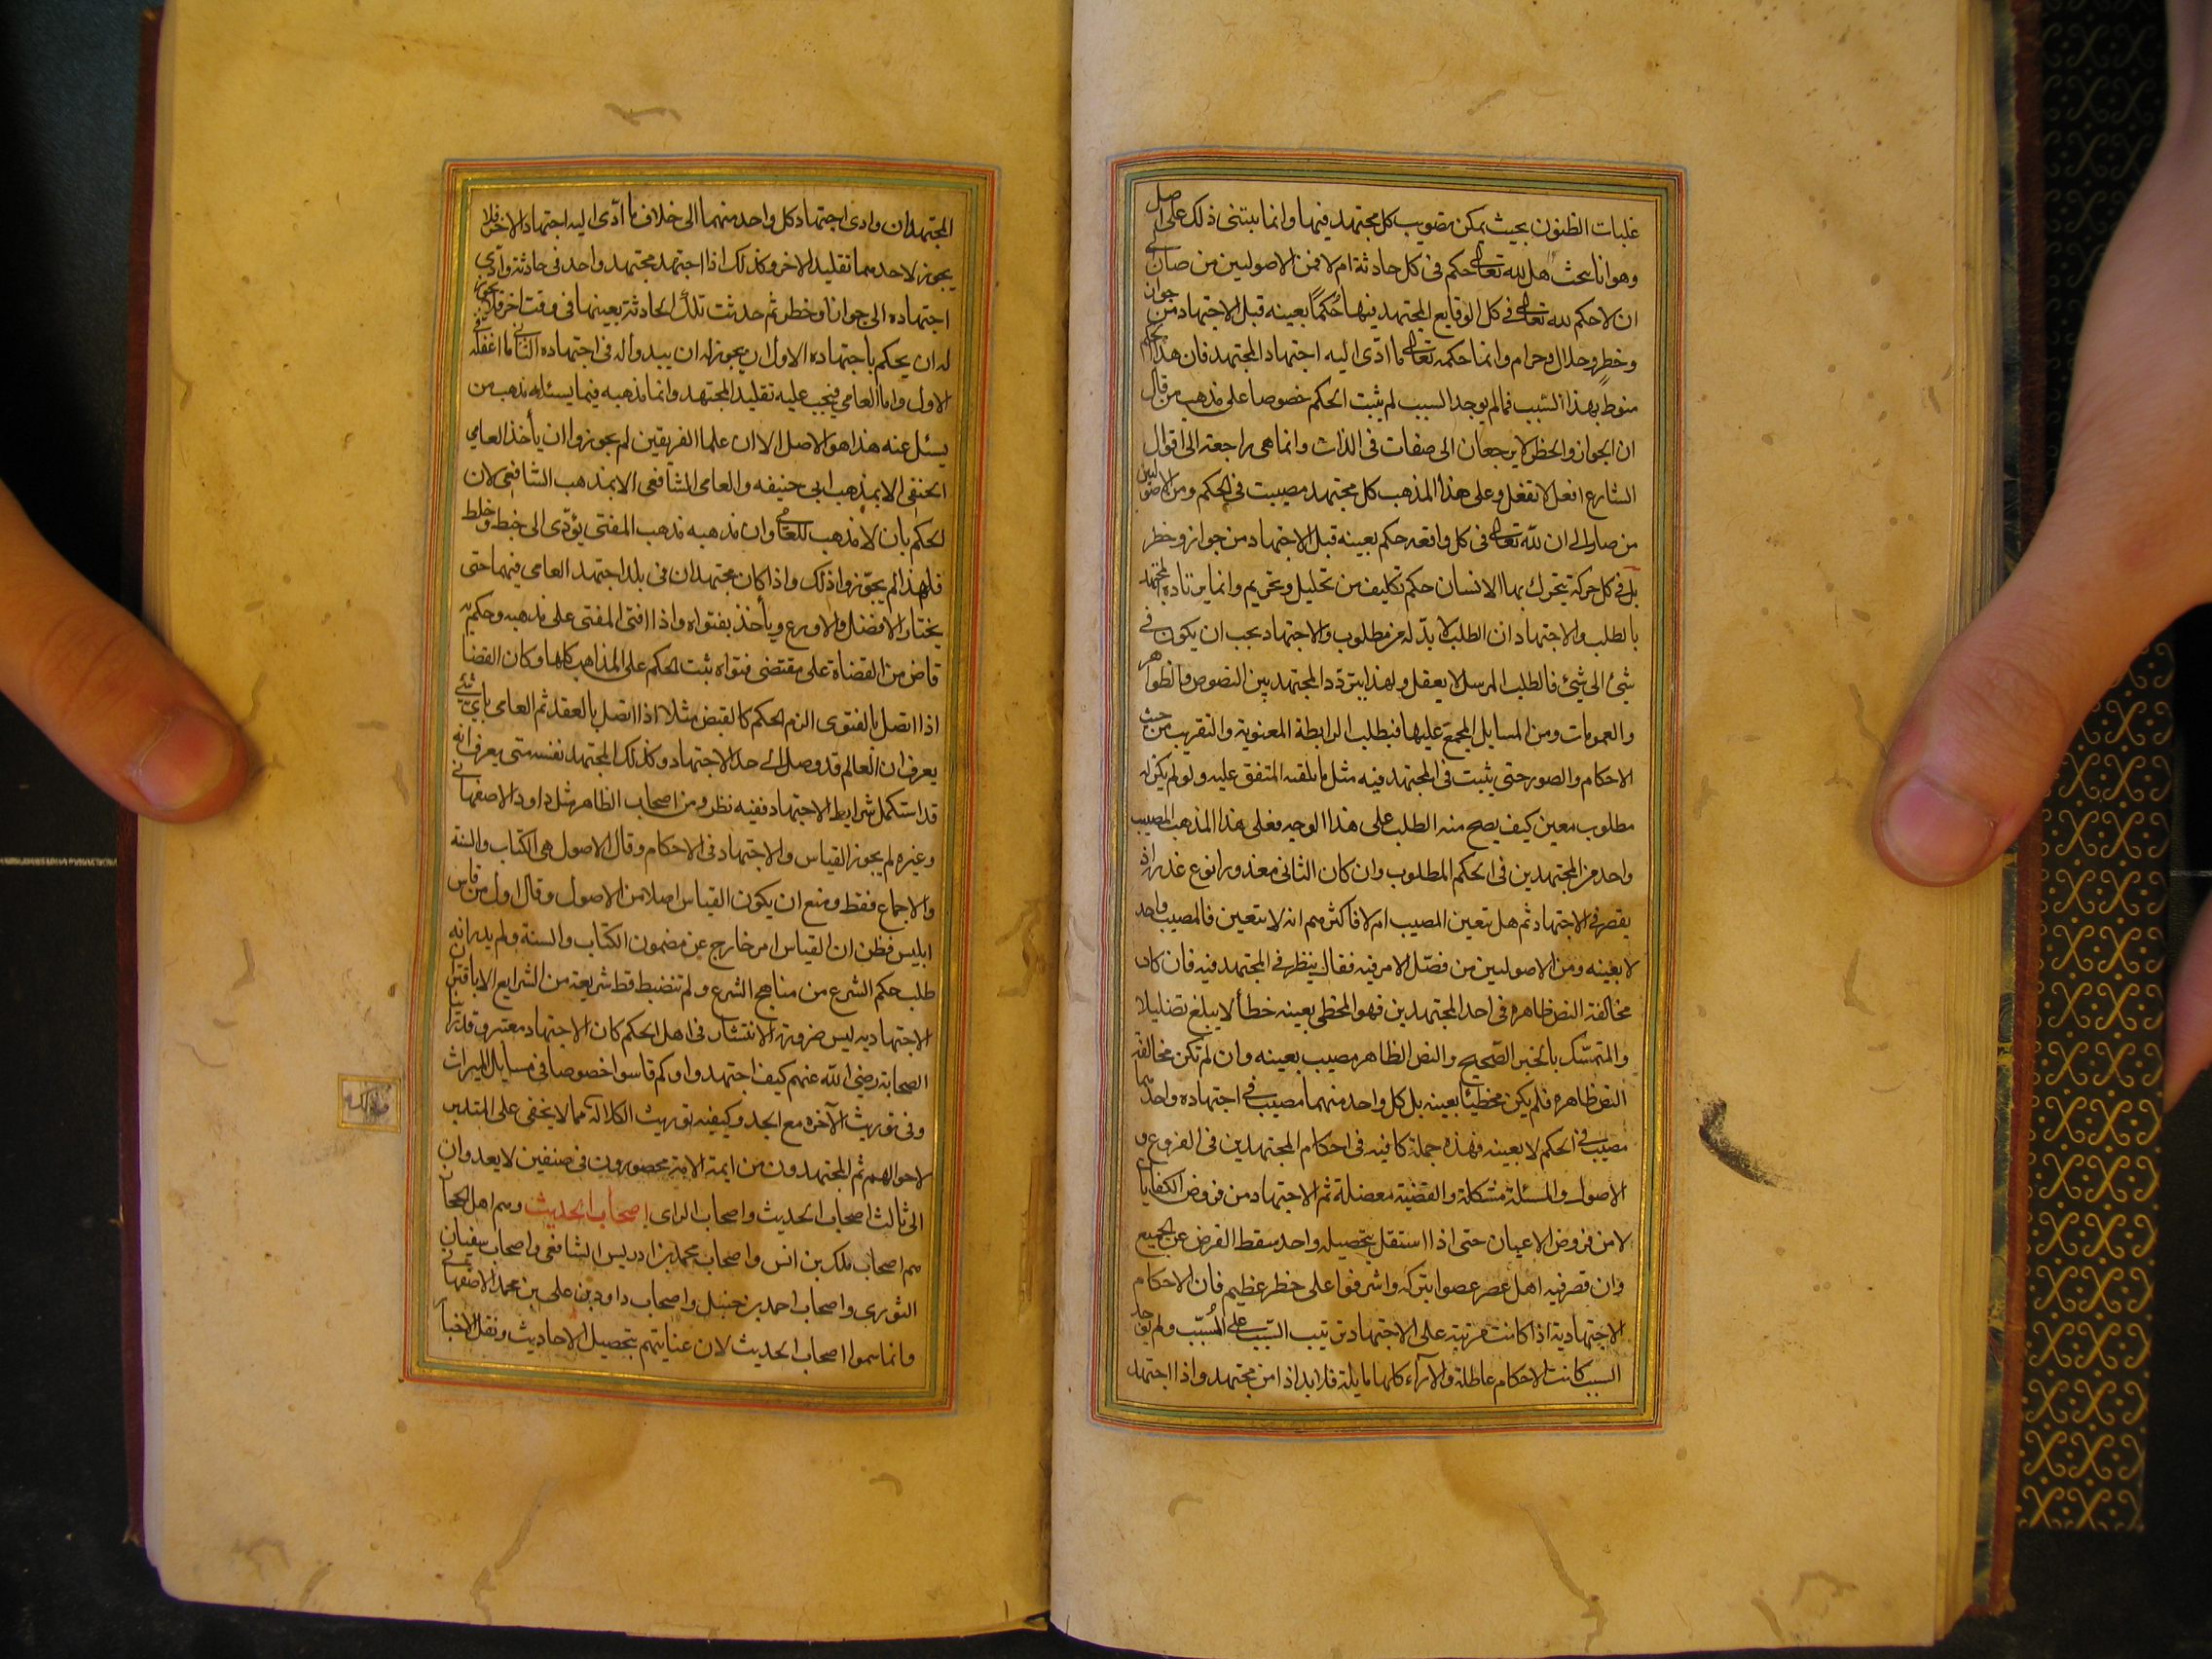 غلبات الظنون بحيث يمكن تصويب كل مجتهد فيها وانما يبتنى ذلك على اصل
وهو انا نبحث هل لله تعالى حكم فى كل حادثة ام لا فمن الاصوليين من صار الى
ان لا حكم لله تعالى فى كل الوقايع المجتهد فيها حُكمًا بعينه قبل الاجتهاد من جواز
وخطر وحلال وحرام وانما حكمه تعالى ما ادّى اليه اجتهاد المجتهد فان هذا الحكم
منوط بهذا السّبب فما لم يوجد السبب لم يثبت الحكم خصوصا على مذهب من قال
ان الجواز والحظر لا يرجعان الى صفات فى الذات وانما هى راجعة الى اقوال
الشارع افعل لا تفعل وعلى هذا المذهب كل مجتهد مصيب فى الحكم ومن الاصوليين
من صار الى ان لله تعالى فى كل واقعة حكم بعينه قبل الاجتهاد من جواز وخطر
بل فى كل حركة يتحرك بها الانسان حكم تكليف من تحليل وتحريم وانما يرتاده المجتهد
بالطلب والاجتهاد ان الطلب لا بدّ له من مطلوب والاجتهاد يجب ان يكون فى
شئ الى شئ فالطلب المرسل لا يعقل ولهذا يتردّد المجتهد بين النصوص والظواهر
والعمومات ومن المسايل المجمع عليها فيطلب الرابطة المعنوية والتقريب من حيث
الاحكام والصور حتى يثبت فى المجتهد فيه مثل ما يلقيه المتفق عليه ولو لم يكن له
مطلوب معين كيف يصح منه الطلب على هذا الوجه فعلى هذا المذهب المصيب
واحد من المجتهدين فى الحكم المطلوب وان كان الثانى معذورا نوع عذر اذ
يقصر فى الاجتهاد ثم هل يتعين المصيب ام لا فاكثرهم انه لا يتعين فالمصيب واحد
لا بعينه ومن الاصوليين من فصّل الامر فيه فقال ينظر فى المجتهد فيه فان كان
مخالفة النص ظاهره فى احد المجتهدين فهو المخطى بعينه خطأ لا يبلغ تضليلا
والمتمسّك بالخبر الصّحيح والنص الظاهر مصيب بعينه وان لم تكن مخالفة
النص ظاهره فلم يكن مخطيًا بعينه بل كل واحد منهما مصيب فى اجتهاده واحدهما
مصيب فى الحكم لا بعينه فهذه جملة كافيه فى احكام المجتهدين فى الفروع و
الاصول والمسئلة مشكلة والقضية معضلة ثم الاجتهاد من فروض الكفايات
لا من فروض الاعيان حتى اذا استقل بتحصيله واحد سقط الفرض عن الجميع
وان قصر فيه اهل عصر عصوا بتركه واشرفوا على خطر عظيم فان الاحكام
الاجتهادية اذا كانت مرتبة على الاجتهاد ترتيب السّبب على المُسبّب ولم يوجد
السبب كانت الاحكام عاطلة والآراء كلها مايلة فلا بد اذا من مجتهد واذا اجتهد
المجتهدان وادى اجتهاد كل واحد منهما الى خلاف ما ادّى اليه اجتهاد الاخر فلا
يجوز لاحدهما تقليد الاخر وكذلك اذا اجتهد مجتهد واحد فى حادثة وادّى
اجتهاده الى جواز او خطر ثم حدثت تلك الحادثة بعينها فى وقت اخر فلا يجوز
له ان يحكم باجتهاده الاول اذ يجوز له ان يبدو له فى اجتهاده الثانى ما اغفله فى
الاول واما العامي فيجب عليه تقليد المجتهد وانما مذهبه فيما يسئله مذهب من
يسئل عنه هذا هو الاصل الا ان علما الفريقين لم يجوزوا ان يأخذ العامي
الحنفى الا بمذهب ابى حنيفه والعامى الشافعى الا بمذهب الشافعى لان
الحكم بان لا مذهب للعامى وان مذهبه مذهب المفتى يؤدّى الى خبط وخلط
فلهذا لم يجوّزوا ذلك واذا كان مجتهدان فى بلد اجتهد العامى فيهما حتى
يختار الافضل والاورع ويأخذ بفتواه واذا افتى المفتى على مذهبه وحكم به
قاض من القضاة على مقتضى فتواه ثبت الحكم على المذاهب كلها وكان القضا
اذا اتصل بالفتوى الزم الحكم كالقبض مثلا اذا اتصل بالعقد ثم العامى باى شئ
يعرف ان العالم قد وصل الى حد الاجتهاد وكذلك المجتهد نفسه متى يعرف انه
قد استكمل شرايط الاجتهاد ففيه نظر ومن اصحاب الظاهر مثل داود الاصفهانى
وغيره لم يجوز القياس والاجتهاد فى الاحكام وقال الاصول هى الكتاب والسنة
والاجماع فقط ومنع ان يكون القياس اصلا من الاصول وقال اول من قاس
ابليس فظن ان القياس امر خارج عن مضمون الكتاب والسنة ولم يدر انه
طلب حكم الشرع من مناهج الشرع ولم تنضبط قط شريعة من الشرايع الا باقتران
الاجتهاد به ليس ضرورة الانتشار فى اهل الحكم كان الاجتهاد معتبر وقد راينا
الصحابة رضى الله عنهم كيف اجتهدوا وكم قاسوا خصوصا فى مسايل الميراث
وفى توريث الآخره مع الجد وكيفيه توريث الكلالة مما لا يخفى على المتدبر
لاحوالهم ثم المجتهدون من ايمة الامة محصورون فى صنفين لا يعدوان
الى ثالث اصحاب الحديث واصحاب الراى اصحاب الحديث وهم اهل الحجاز
هم اصحاب ملك بن انس واصحاب محمد بن ادريس الشافعى واصحاب سفيان
الثورى واصحاب احمد بن حنبل واصحاب داود بن على بن محمد الاصفهانى
وانما سموا اصحاب الحديث لان عنايتهم بتحصيل الاحاديث ونقل الاخبار